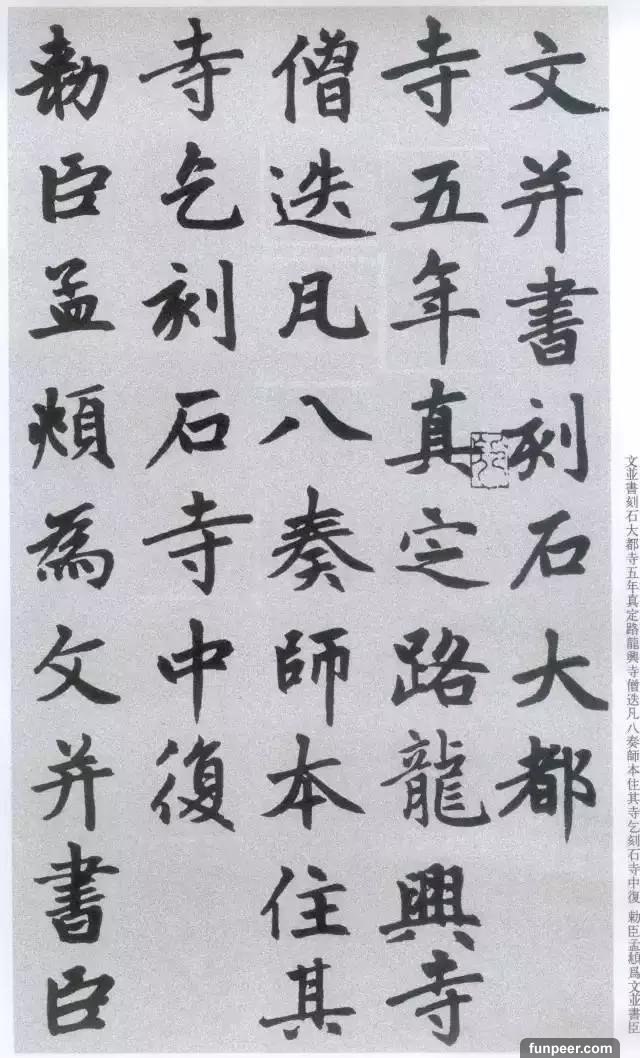 文并書刻石大都
寺五年真定路龍興寺
僧迭凡八奏師本住其
寺乞刻石寺中復
勅臣孟頫為文并書臣
文並書刻石大都寺五年真定路龍興寺僧迭凡八奏師本住其寺乞刻石寺中復 勅臣孟頫爲文並書臣
funpeer.com